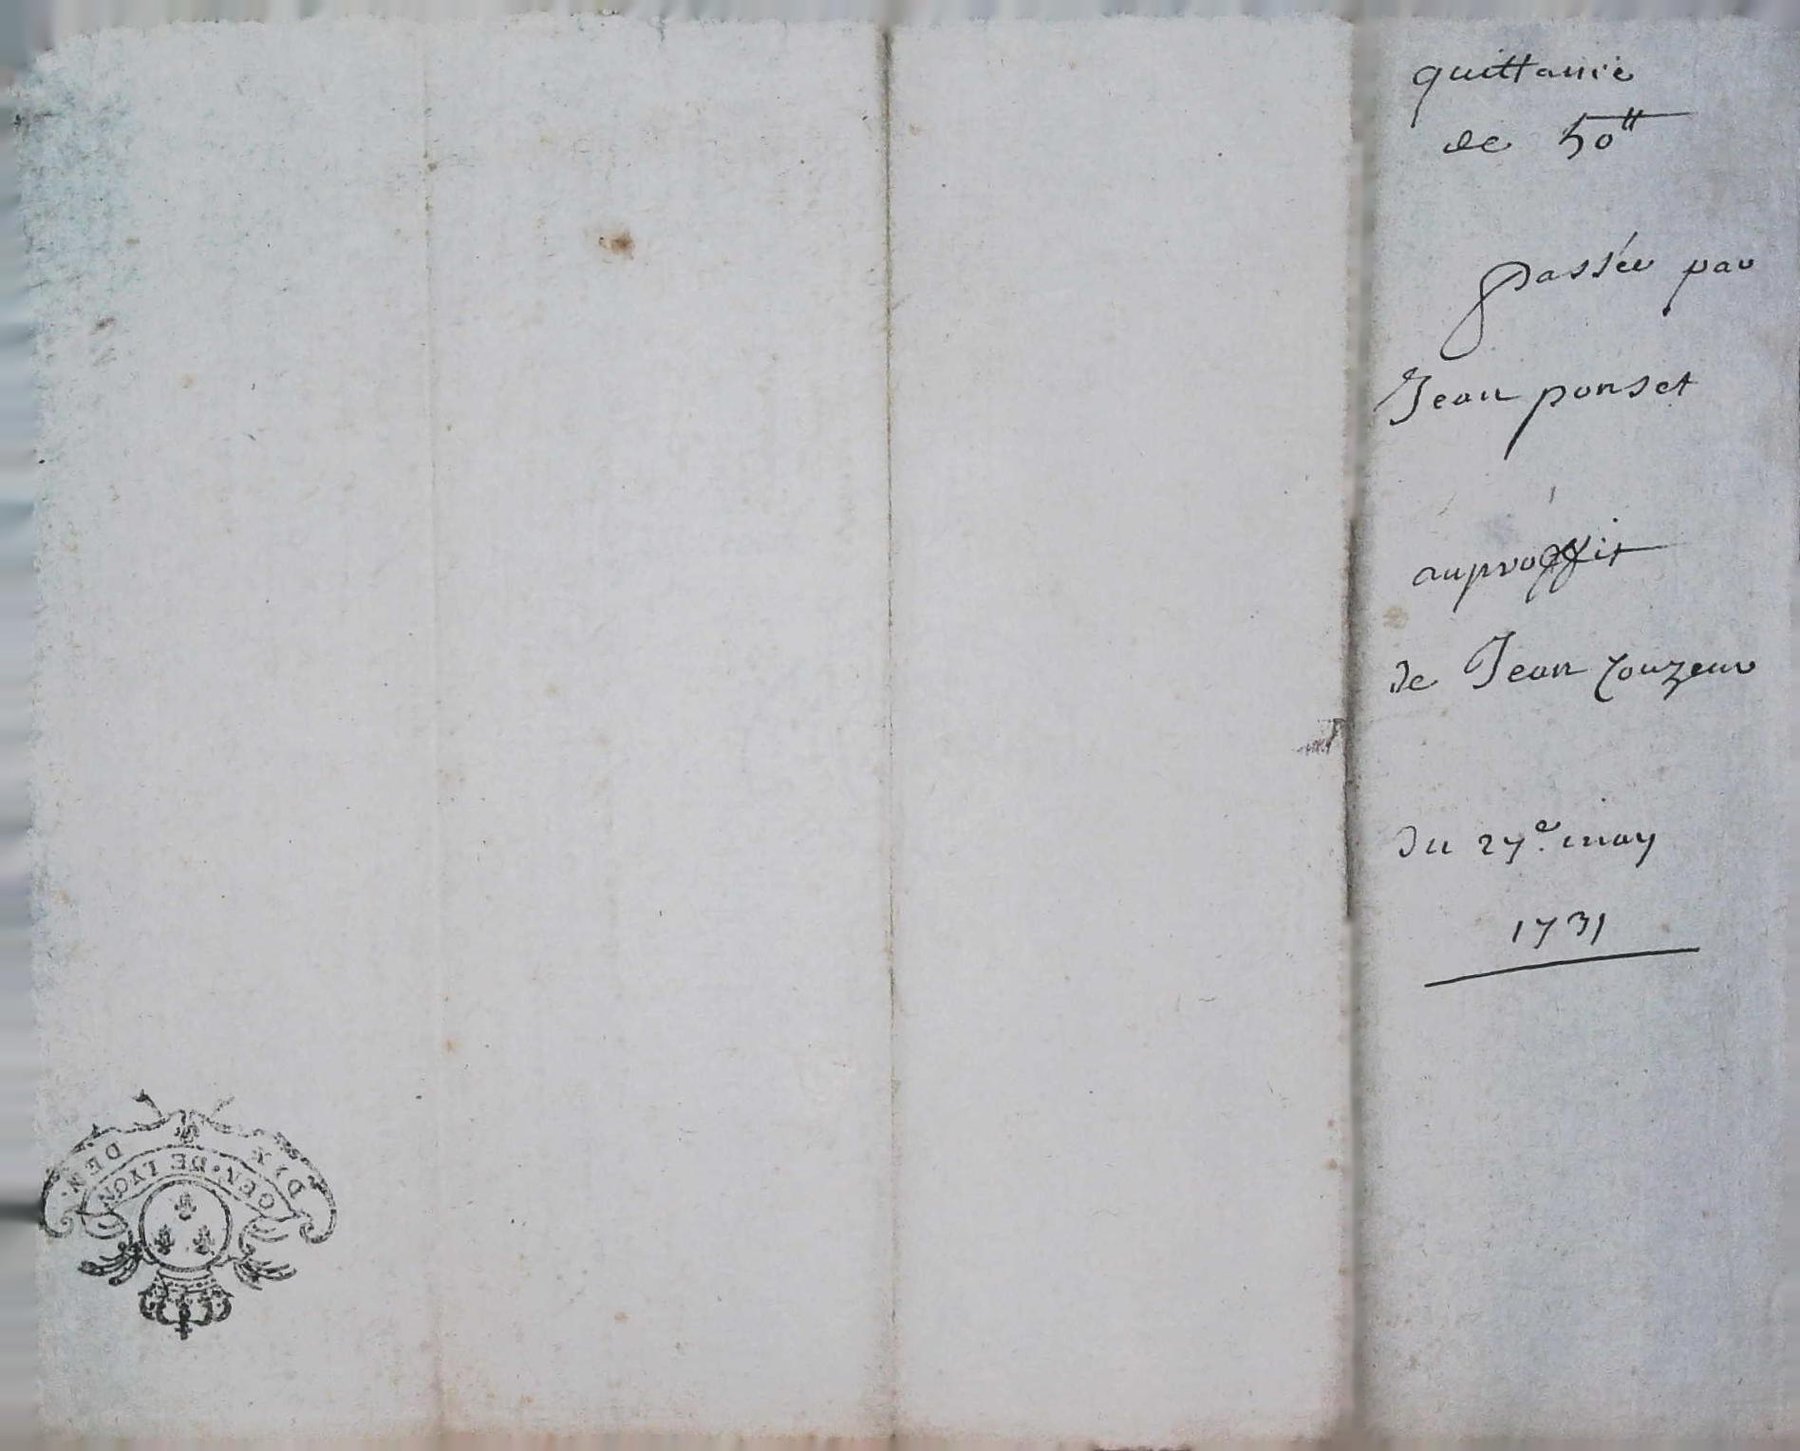 quittance
de 50ᵗᵗ
passée par
Jean ponset
au proffit
de Jean Couzeur
du 27ᵉ. may
1731
DIX DEN.
GEN. DE LYON